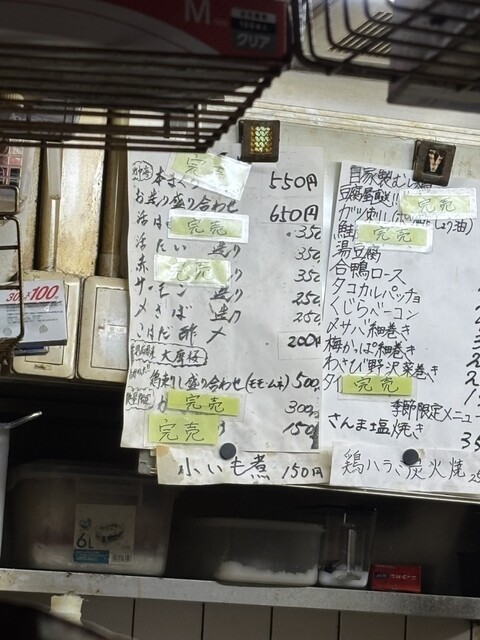 M
クリア
本まぐ 完売 550円
お造り盛り合わせ 650円
活は 完売 350
活たい 造り 350
赤 完売 350
サーモン 造り 250
〆さば 造り 250
こはだ酢〆 200円
大摩桜
鳥刺し盛り合わせ(モモ・ムネ) 500
完売 300
完売 150
小いも煮 150円
自家製むし鶏
豆腐 完売
ガツ刺し
鮭 完売
湯豆腐
合鴨ロース
タコカルパッチョ
くじらベーコン
〆サバ細巻き
梅かっぱ細巻き
わさび野沢菜巻き
タイ 完売
季節限定メニュー
さんま塩焼き 35
鶏ハラミ炭火焼 25
100
6L